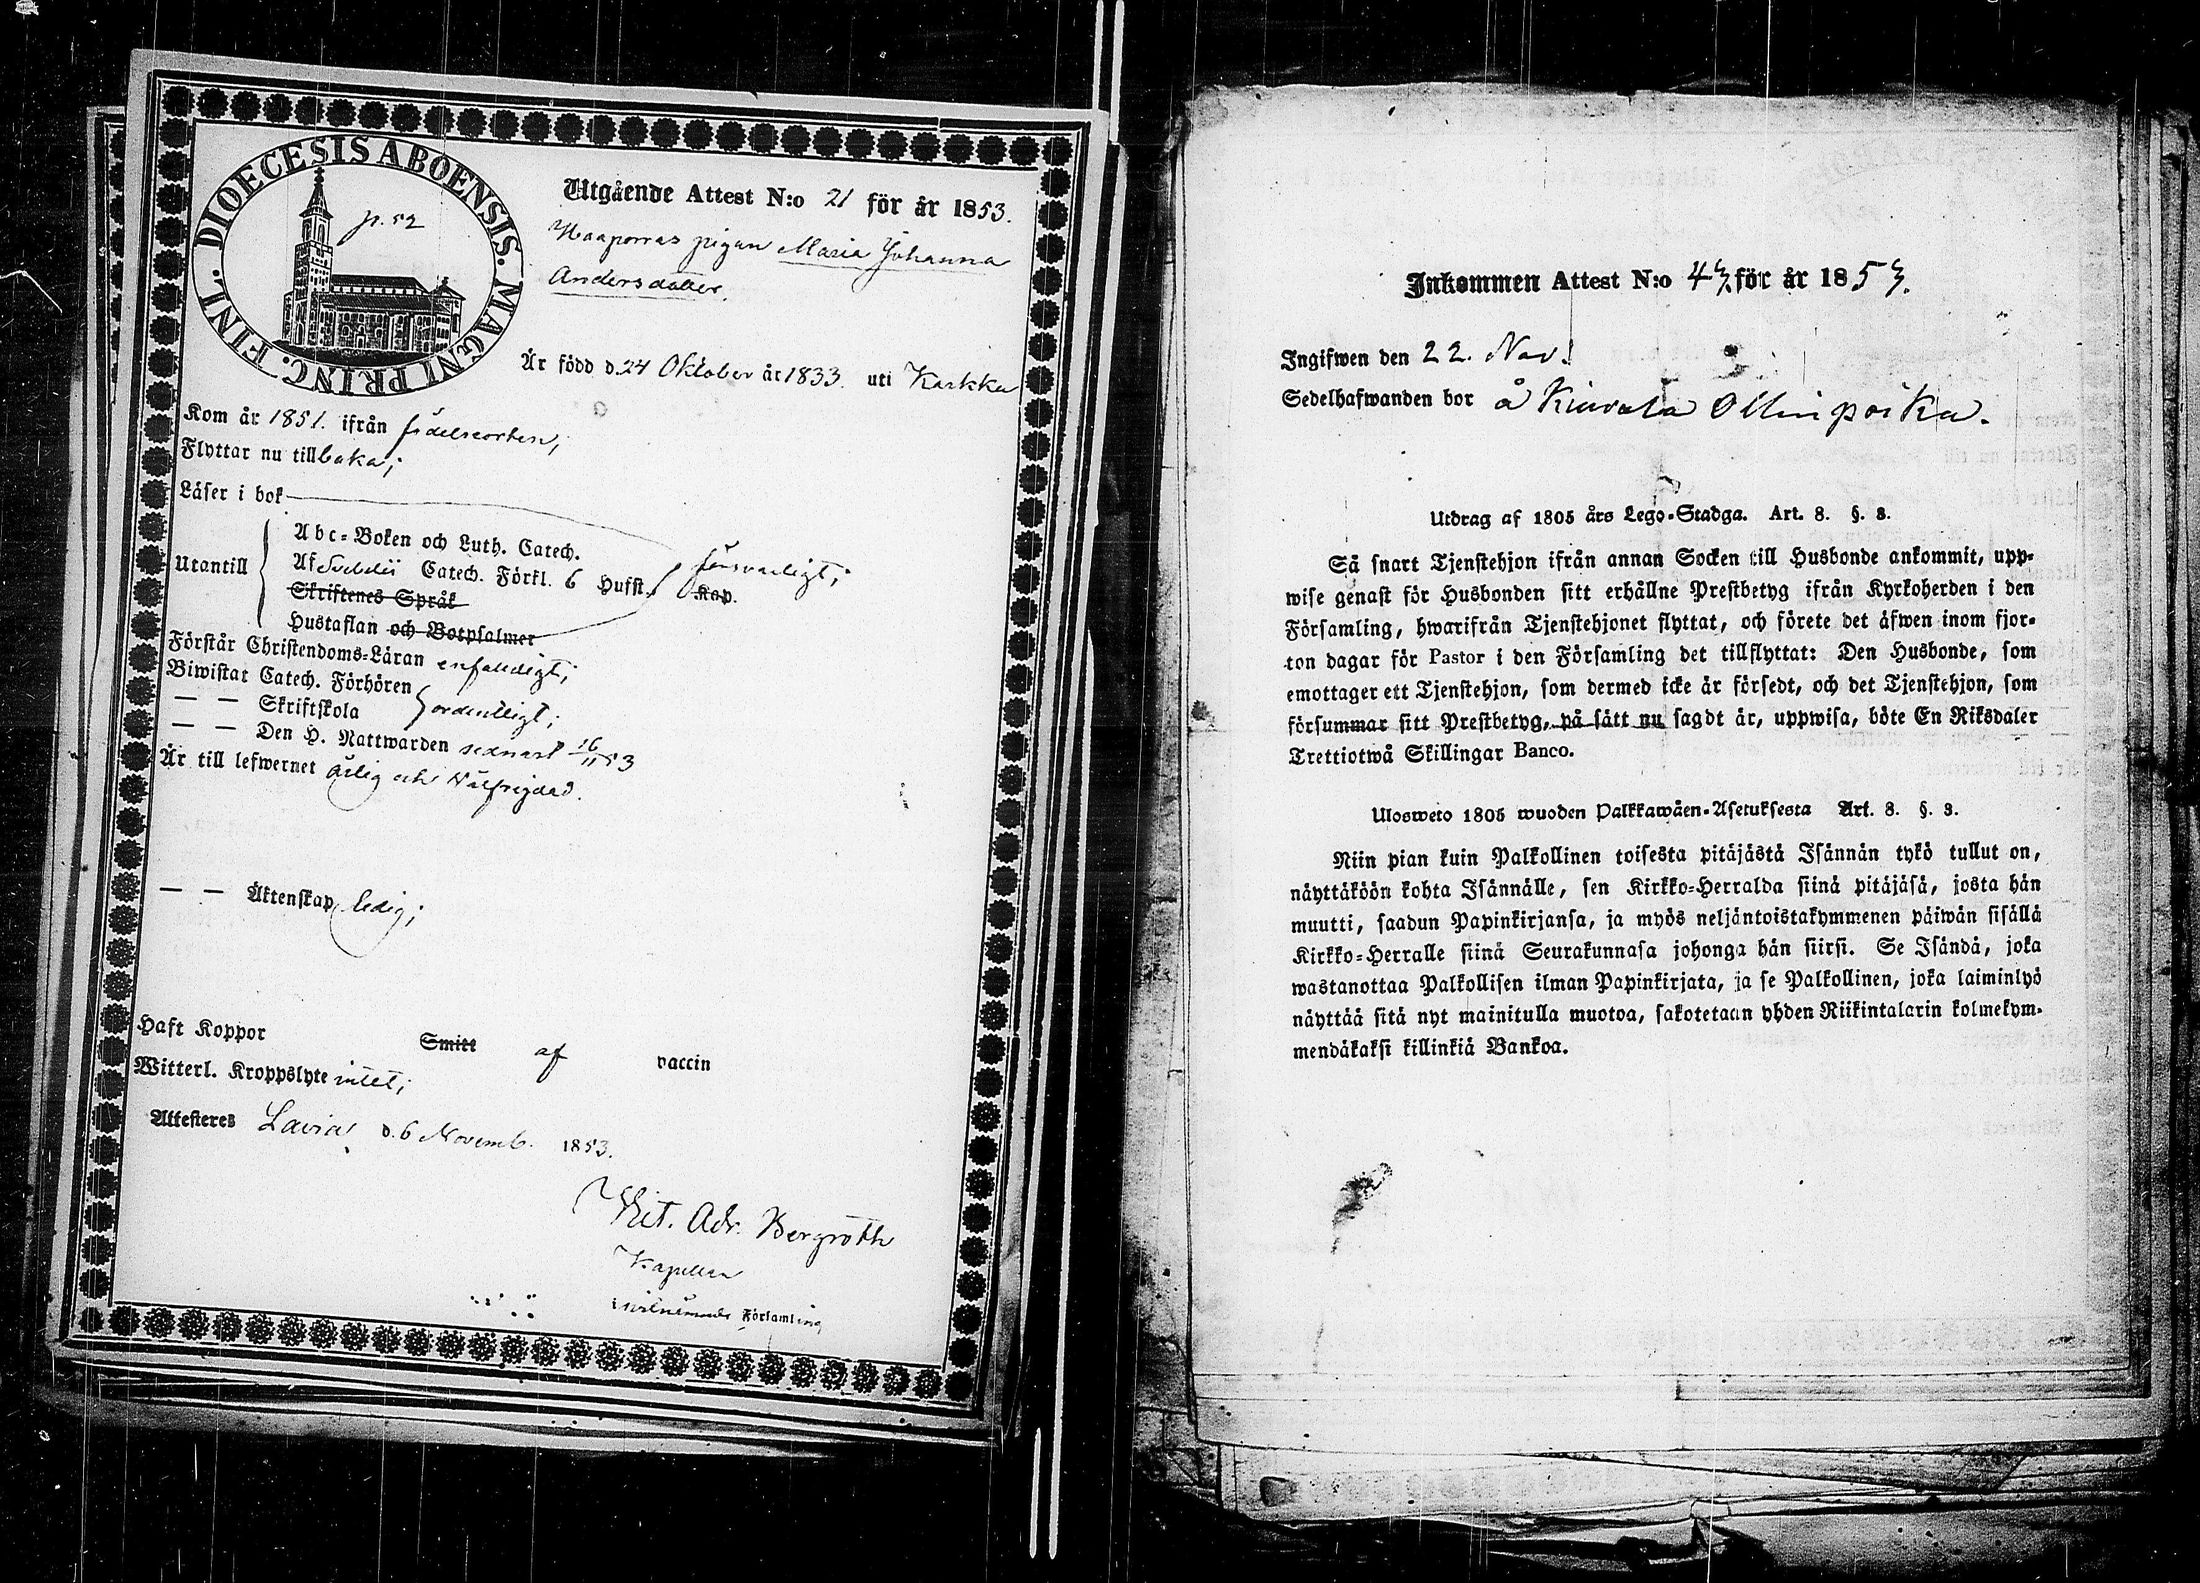 DIOECESIS ABOENSIS. MAGNI PRINC. FINL.
p. 52
Utgående Attest N:o 21 för år 1853.
pigan Maria Johanna
Andersdotter.
Är född d. 24 Oktober år 1833. uti Karkku
Kom år 1851. ifrån
Flyttar nu tillbaka;
Läser i bok
Utantill
Abc-Boken och Luth. Catech.
Af Svebelii Catech. Förkl. 6 Hufst. Kap. försvarligt;
Skriftenes Språk
Hustaflan och Botpsalmer
Förstår Christendoms-Läran enfaldigt;
Biwistat Catech. Förhören
— — Skriftskola ordentligt;
— — Den H. Nattwarden sednast 16/11 53
Är till lefwernet ärlig och Wälfrejdad.
— — Äktenskap ledig;
Haft Koppor Smitt af vaccin
Witterl. Kroppslyte intet;
Attesteres Lavia d. 6 Novemb. 1853.
Vit. Adr. Bergroth
Kapellan
i Församling
Inkommen Attest N:o 43. för år 1853.
Ingifwen den 22. Nov.
Sedelhafwanden bor å Kiurala Ollinpoika.
Utdrag af 1805 års Lego-Stadga. Art. 8. §. 3.
Så snart Tjenstehjon ifrån annan Socken till Husbonde ankommit, upp-
wise genast för Husbonden sitt erhållne Prestbetyg ifrån Kyrkoherden i den
Församling, hwarifrån Tjenstehjonet flyttat, och förete det äfwen inom fjor-
ton dagar för Pastor i den Församling det tillflyttat: Den Husbonde, som
emottager ett Tjenstehjon, som dermed icke är försedt, och det Tjenstehjon, som
försummar sitt Prestbetyg, på sätt nu sagdt är, uppwisa, böte En Riksdaler
Trettiotwå Skillingar Banco.
Ulosweto 1805 wuoden Palkkawäen-Asetuksesta Art. 8. §. 3.
Niin pian kuin Palkollinen toisesta pitäjästä Isännän tykö tullut on,
näyttäköön kohta Isännälle, sen Kirkko-Herralda siinä pitäjäsä, josta hän
muutti, saadun Papinkirjansa, ja myös neljäntoistakymmenen päiwän sisällä
Kirkko-Herralle siinä Seurakunnasa johonga hän siirsi. Se Isändä, joka
wastanottaa Palkollisen ilman Papinkirjata, ja se Palkollinen, joka laiminlyö
näyttää sitä nyt mainitulla muotoa, sakotetaan yhden Riikintalarin kolmekym-
mendäkaksi killinkiä Bankoa.